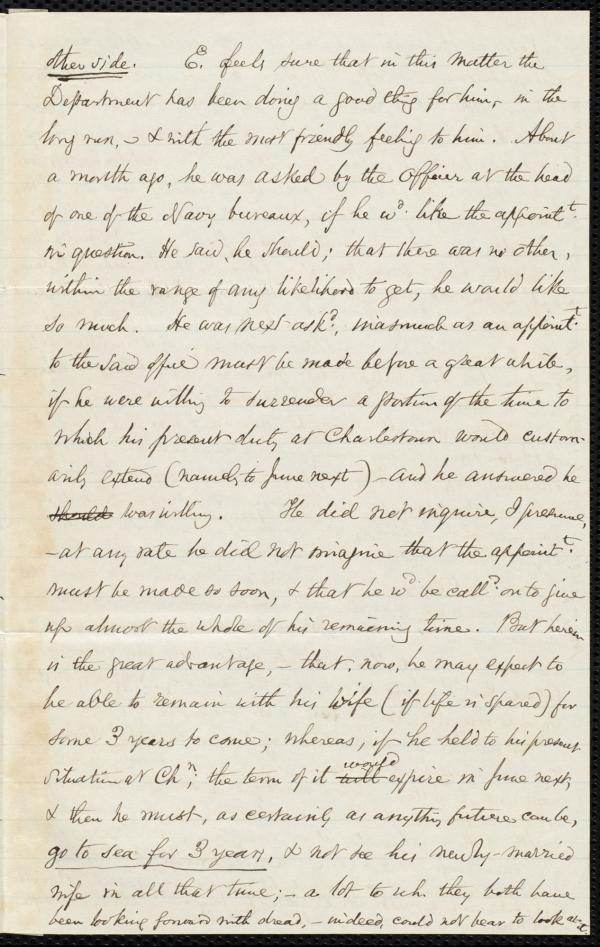 other side. E. feels sure that in this matter the
Department has been doing a good thing for him, in the
long run, - & with the most friendly feeling to him. About
a month ago, he was asked by the Officer at the head
of one of the Navy bureaux, if he wd. like the appointt.
in question. He said, he should; that there was no other,
within the range of any likelihood to get, he would like
so much. He was next askd., inasmuch as an appointt.
to the said office must be made before a great while,
if he were willing to surrender a portion of the time to
which his present duty at Charlestown would custom-
arily extend (namely, to June next) - and he answered he
should was willing. He did not inquire, I presume,
- at any rate he did not imagine that the appointt.
must be made so soon, & that he wd. be calld. on to give
up almost the whole of his remaining time. But herein
is the great advantage, - that, now, he may expect to
be able to remain with his wife (if life is spared) for
some 3 years to come; whereas, if he held to his present
situation at Chn., the term of it will would expire in June next,
& then he must, as certainly as anything future can be,
go to sea for 3 years, & not see his newly-married
wife in all that time; - a lot to wh. they both have
been looking forward with dread, - indeed, could not bear to look at it.